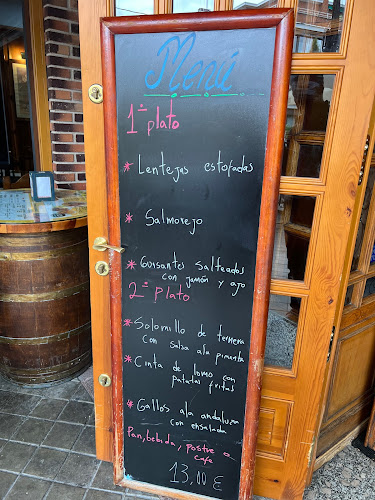 Menú
1º plato
* Lentejas estofadas
* Salmorejo
* Guisantes salteados
con jamón y ajo
2º plato
* Solomillo de ternera
con salsa a la pimienta
* Cinta de lomo con
patatas fritas
* Gallos a la andaluza
con ensalada
Pan, bebida, postre o
café
13,00 €